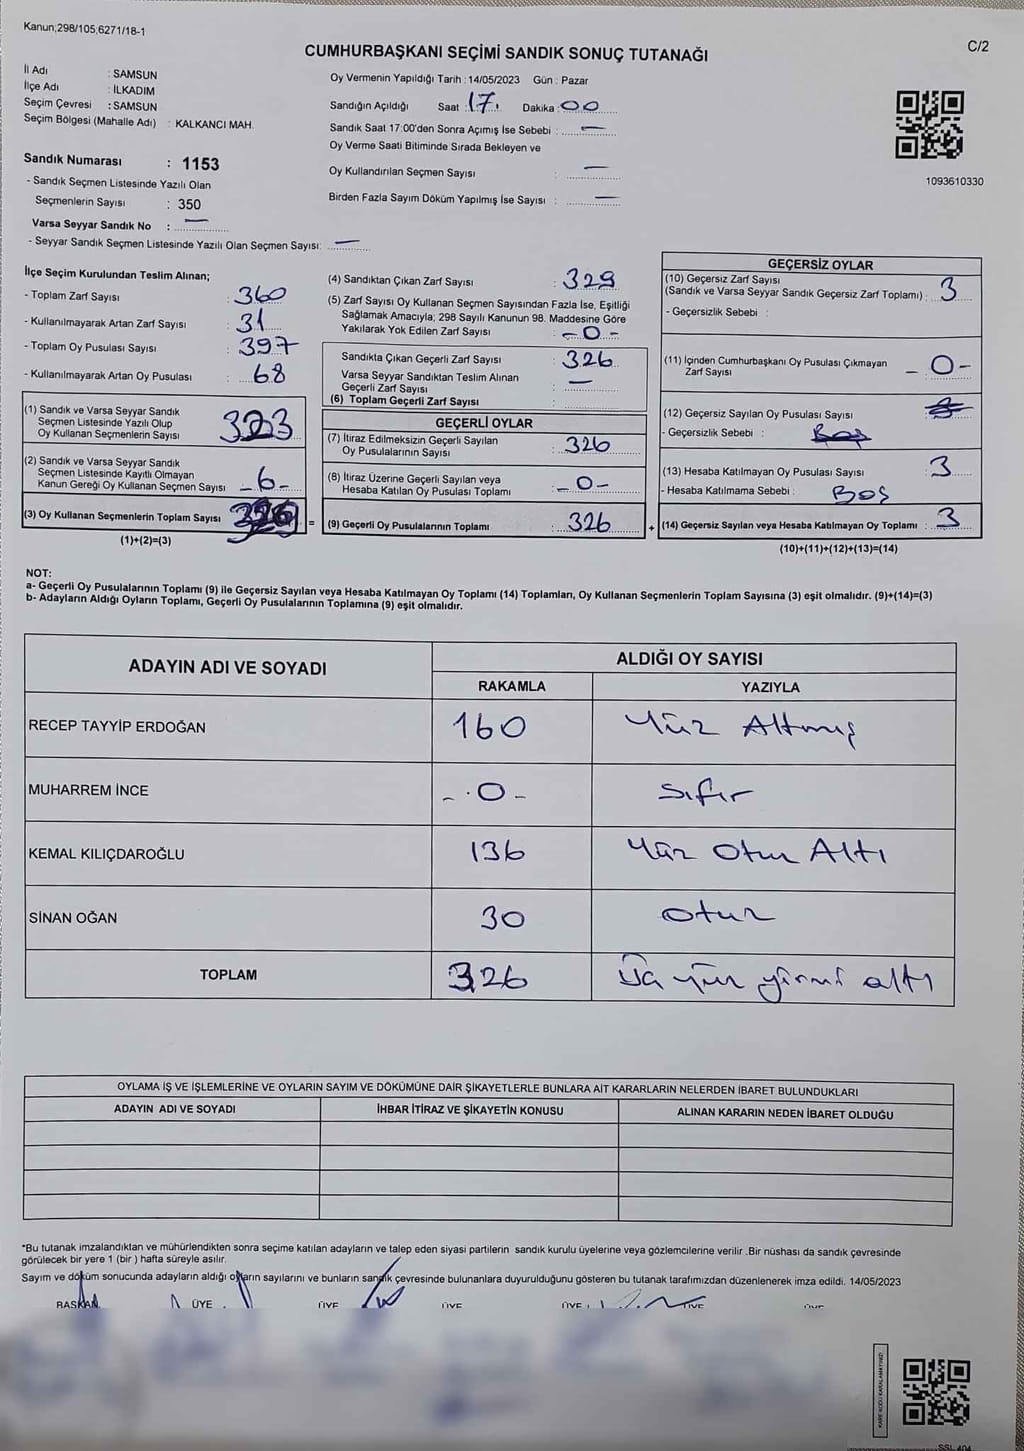 Kanun;298/105,6271/18-1
C/2
CUMHURBAŞKANI SEÇİMİ SANDIK SONUÇ TUTANAĞI
İl Adı : SAMSUN
İlçe Adı : İLKADIM
Seçim Çevresi : SAMSUN
Seçim Bölgesi (Mahalle Adı) : KALKANCI MAH.
Sandık Numarası : 1153
- Sandık Seçmen Listesinde Yazılı Olan
Seçmenlerin Sayısı : 350
Varsa Seyyar Sandık No : —
- Seyyar Sandık Seçmen Listesinde Yazılı Olan Seçmen Sayısı: —
Oy Vermenin Yapıldığı Tarih : 14/05/2023 Gün : Pazar
Sandığın Açıldığı Saat : 17. Dakika : 00
Sandık Saat 17:00'den Sonra Açımış İse Sebebi : —
Oy Verme Saati Bitiminde Sırada Bekleyen ve
Oy Kullandırılan Seçmen Sayısı : —
Birden Fazla Sayım Döküm Yapılmış İse Sayısı : —
1093610330
İlçe Seçim Kurulundan Teslim Alınan;
- Toplam Zarf Sayısı : 360
- Kullanılmayarak Artan Zarf Sayısı : 31
- Toplam Oy Pusulası Sayısı : 397
- Kullanılmayarak Artan Oy Pusulası : 68
(1) Sandık ve Varsa Seyyar Sandık
Seçmen Listesinde Yazılı Olup
Oy Kullanan Seçmenlerin Sayısı 323
(2) Sandık ve Varsa Seyyar Sandık
Seçmen Listesinde Kayıtlı Olmayan
Kanun Gereği Oy Kullanan Seçmen Sayısı -6-
(3) Oy Kullanan Seçmenlerin Toplam Sayısı
=
(1)+(2)=(3)
(4) Sandıktan Çıkan Zarf Sayısı : 329
(5) Zarf Sayısı Oy Kullanan Seçmen Sayısından Fazla İse, Eşitliği
Sağlamak Amacıyla; 298 Sayılı Kanunun 98. Maddesine Göre
Yakılarak Yok Edilen Zarf Sayısı : -0-
Sandıkta Çıkan Geçerli Zarf Sayısı : 326
Varsa Seyyar Sandıktan Teslim Alınan
Geçerli Zarf Sayısı : —
(6) Toplam Geçerli Zarf Sayısı :
GEÇERLİ OYLAR
(7) İtiraz Edilmeksizin Geçerli Sayılan
Oy Pusulalarının Sayısı : 326
(8) İtiraz Üzerine Geçerli Sayılan veya
Hesaba Katılan Oy Pusulası Toplamı : -0-
(9) Geçerli Oy Pusulalarının Toplamı : 326
+
GEÇERSİZ OYLAR
(10) Geçersiz Zarf Sayısı
(Sandık ve Varsa Seyyar Sandık Geçersiz Zarf Toplamı) : 3
- Geçersizlik Sebebi :
(11) İçinden Cumhurbaşkanı Oy Pusulası Çıkmayan
Zarf Sayısı -0-
(12) Geçersiz Sayılan Oy Pusulası Sayısı
- Geçersizlik Sebebi : Boş
(13) Hesaba Katılmayan Oy Pusulası Sayısı 3
- Hesaba Katılmama Sebebi : Boş
(14) Geçersiz Sayılan veya Hesaba Katılmayan Oy Toplamı : 3
(10)+(11)+(12)+(13)=(14)
NOT:
a- Geçerli Oy Pusulalarının Toplamı (9) ile Geçersiz Sayılan veya Hesaba Katılmayan Oy Toplamı (14) Toplamları, Oy Kullanan Seçmenlerin Toplam Sayısına (3) eşit olmalıdır. (9)+(14)=(3)
b- Adayların Aldığı Oyların Toplamı, Geçerli Oy Pusulalarının Toplamına (9) eşit olmalıdır.
ADAYIN ADI VE SOYADI
ALDIĞI OY SAYISI
RAKAMLA YAZIYLA
RECEP TAYYİP ERDOĞAN 160 Yüz Altmış
MUHARREM İNCE -.0- sıfır
KEMAL KILIÇDAROĞLU 136 Yüz Otuz Altı
SİNAN OĞAN 30 otuz
TOPLAM 326 Üç yüz yirmi altı
OYLAMA İŞ VE İŞLEMLERİNE VE OYLARIN SAYIM VE DÖKÜMÜNE DAİR ŞİKAYETLERLE BUNLARA AİT KARARLARIN NELERDEN İBARET BULUNDUKLARI
ADAYIN ADI VE SOYADI İHBAR İTİRAZ VE ŞİKAYETİN KONUSU ALINAN KARARIN NEDEN İBARET OLDUĞU
*Bu tutanak imzalandıktan ve mühürlendikten sonra seçime katılan adayların ve talep eden siyasi partilerin sandık kurulu üyelerine veya gözlemcilerine verilir .Bir nüshası da sandık çevresinde
görülecek bir yere 1 (bir ) hafta süreyle asılır.
Sayım ve döküm sonucunda adayların aldığı oyların sayılarını ve bunların sandık çevresinde bulunanlara duyurulduğunu gösteren bu tutanak tarafımızdan düzenlenerek imza edildi. 14/05/2023
BAŞKAN ÜYE ÜYE ÜYE ÜYE ÜYE ÜYE